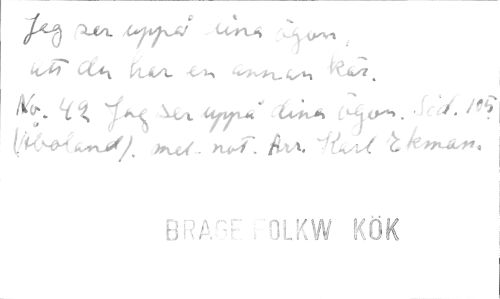 Jag ser uppå dina ögon,
att du har en annan kär.
No. 42 Jag ser uppå dina ögon. Söd. 105
(Åboland). mel. not. Arr. Karl Ekman.
BRAGE FOLKW KÖK